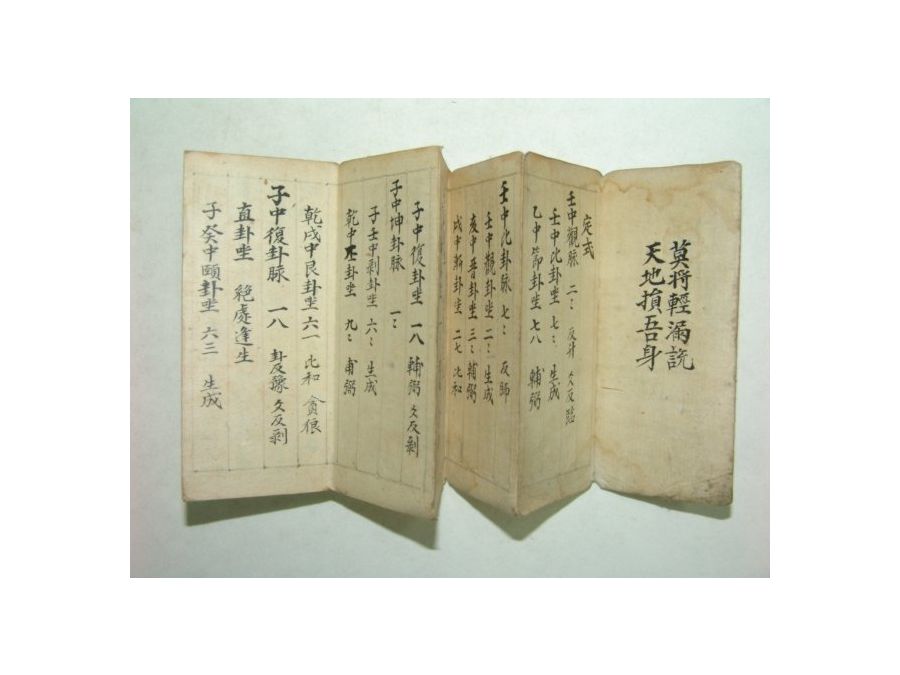 莫将輕漏説
天地損吾身
定式
壬中觀脉 二〻 反升 爻反臨
壬中比卦坐 七〻 生成
乙中節卦坐 七八 輔弼
壬中比卦脉 七〻 反師
壬中觀卦坐 二〻 生成
亥中晋卦坐 三〻 輔弼
戌中漸卦坐 二七 比和
子中復卦坐 一八 輔弼 爻反剥
子中坤卦脉 一〻
子壬中剥卦坐 六〻 生成
乾中否卦坐 九〻 甫弼
乾戌中艮卦坐 六一 比和 貪狼
子中復卦脉 一八 卦反豫 爻反剥
直卦坐 絶處逢生
子癸中頤卦坐 六三 生成